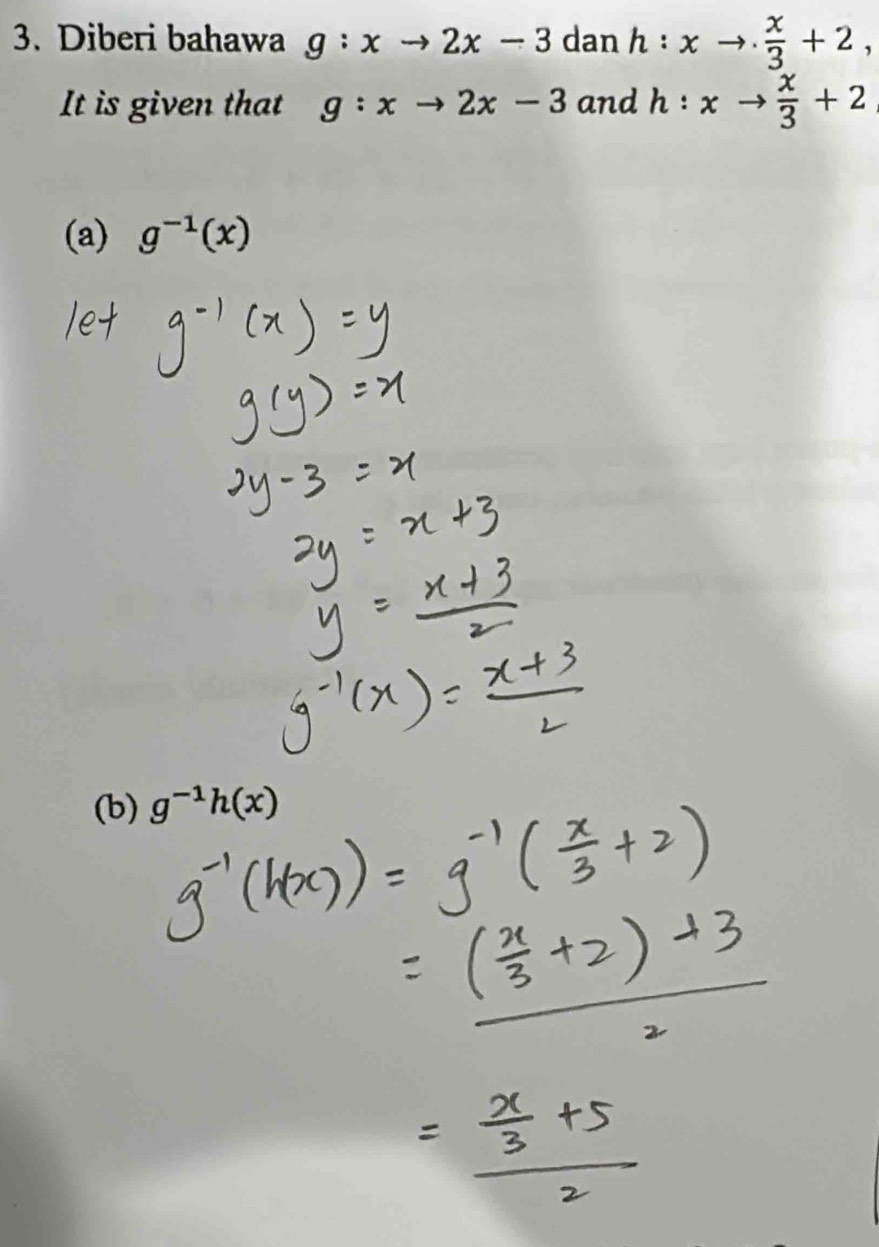 3. Diberi bahawa g : x → 2x − 3 dan h : x → x/3 + 2 ,
It is given that g : x → 2x − 3 and h : x → x/3 + 2
(a) g⁻¹(x)
let g⁻¹(x) = y
g(y) = x
2y - 3 = x
2y = x + 3
y = (x + 3)/2
g⁻¹(x) = (x + 3)/2
(b) g⁻¹h(x)
g⁻¹(h(x)) = g⁻¹(x/3 + 2)
= ((x/3 + 2) + 3)/2
= (x/3 + 5)/2